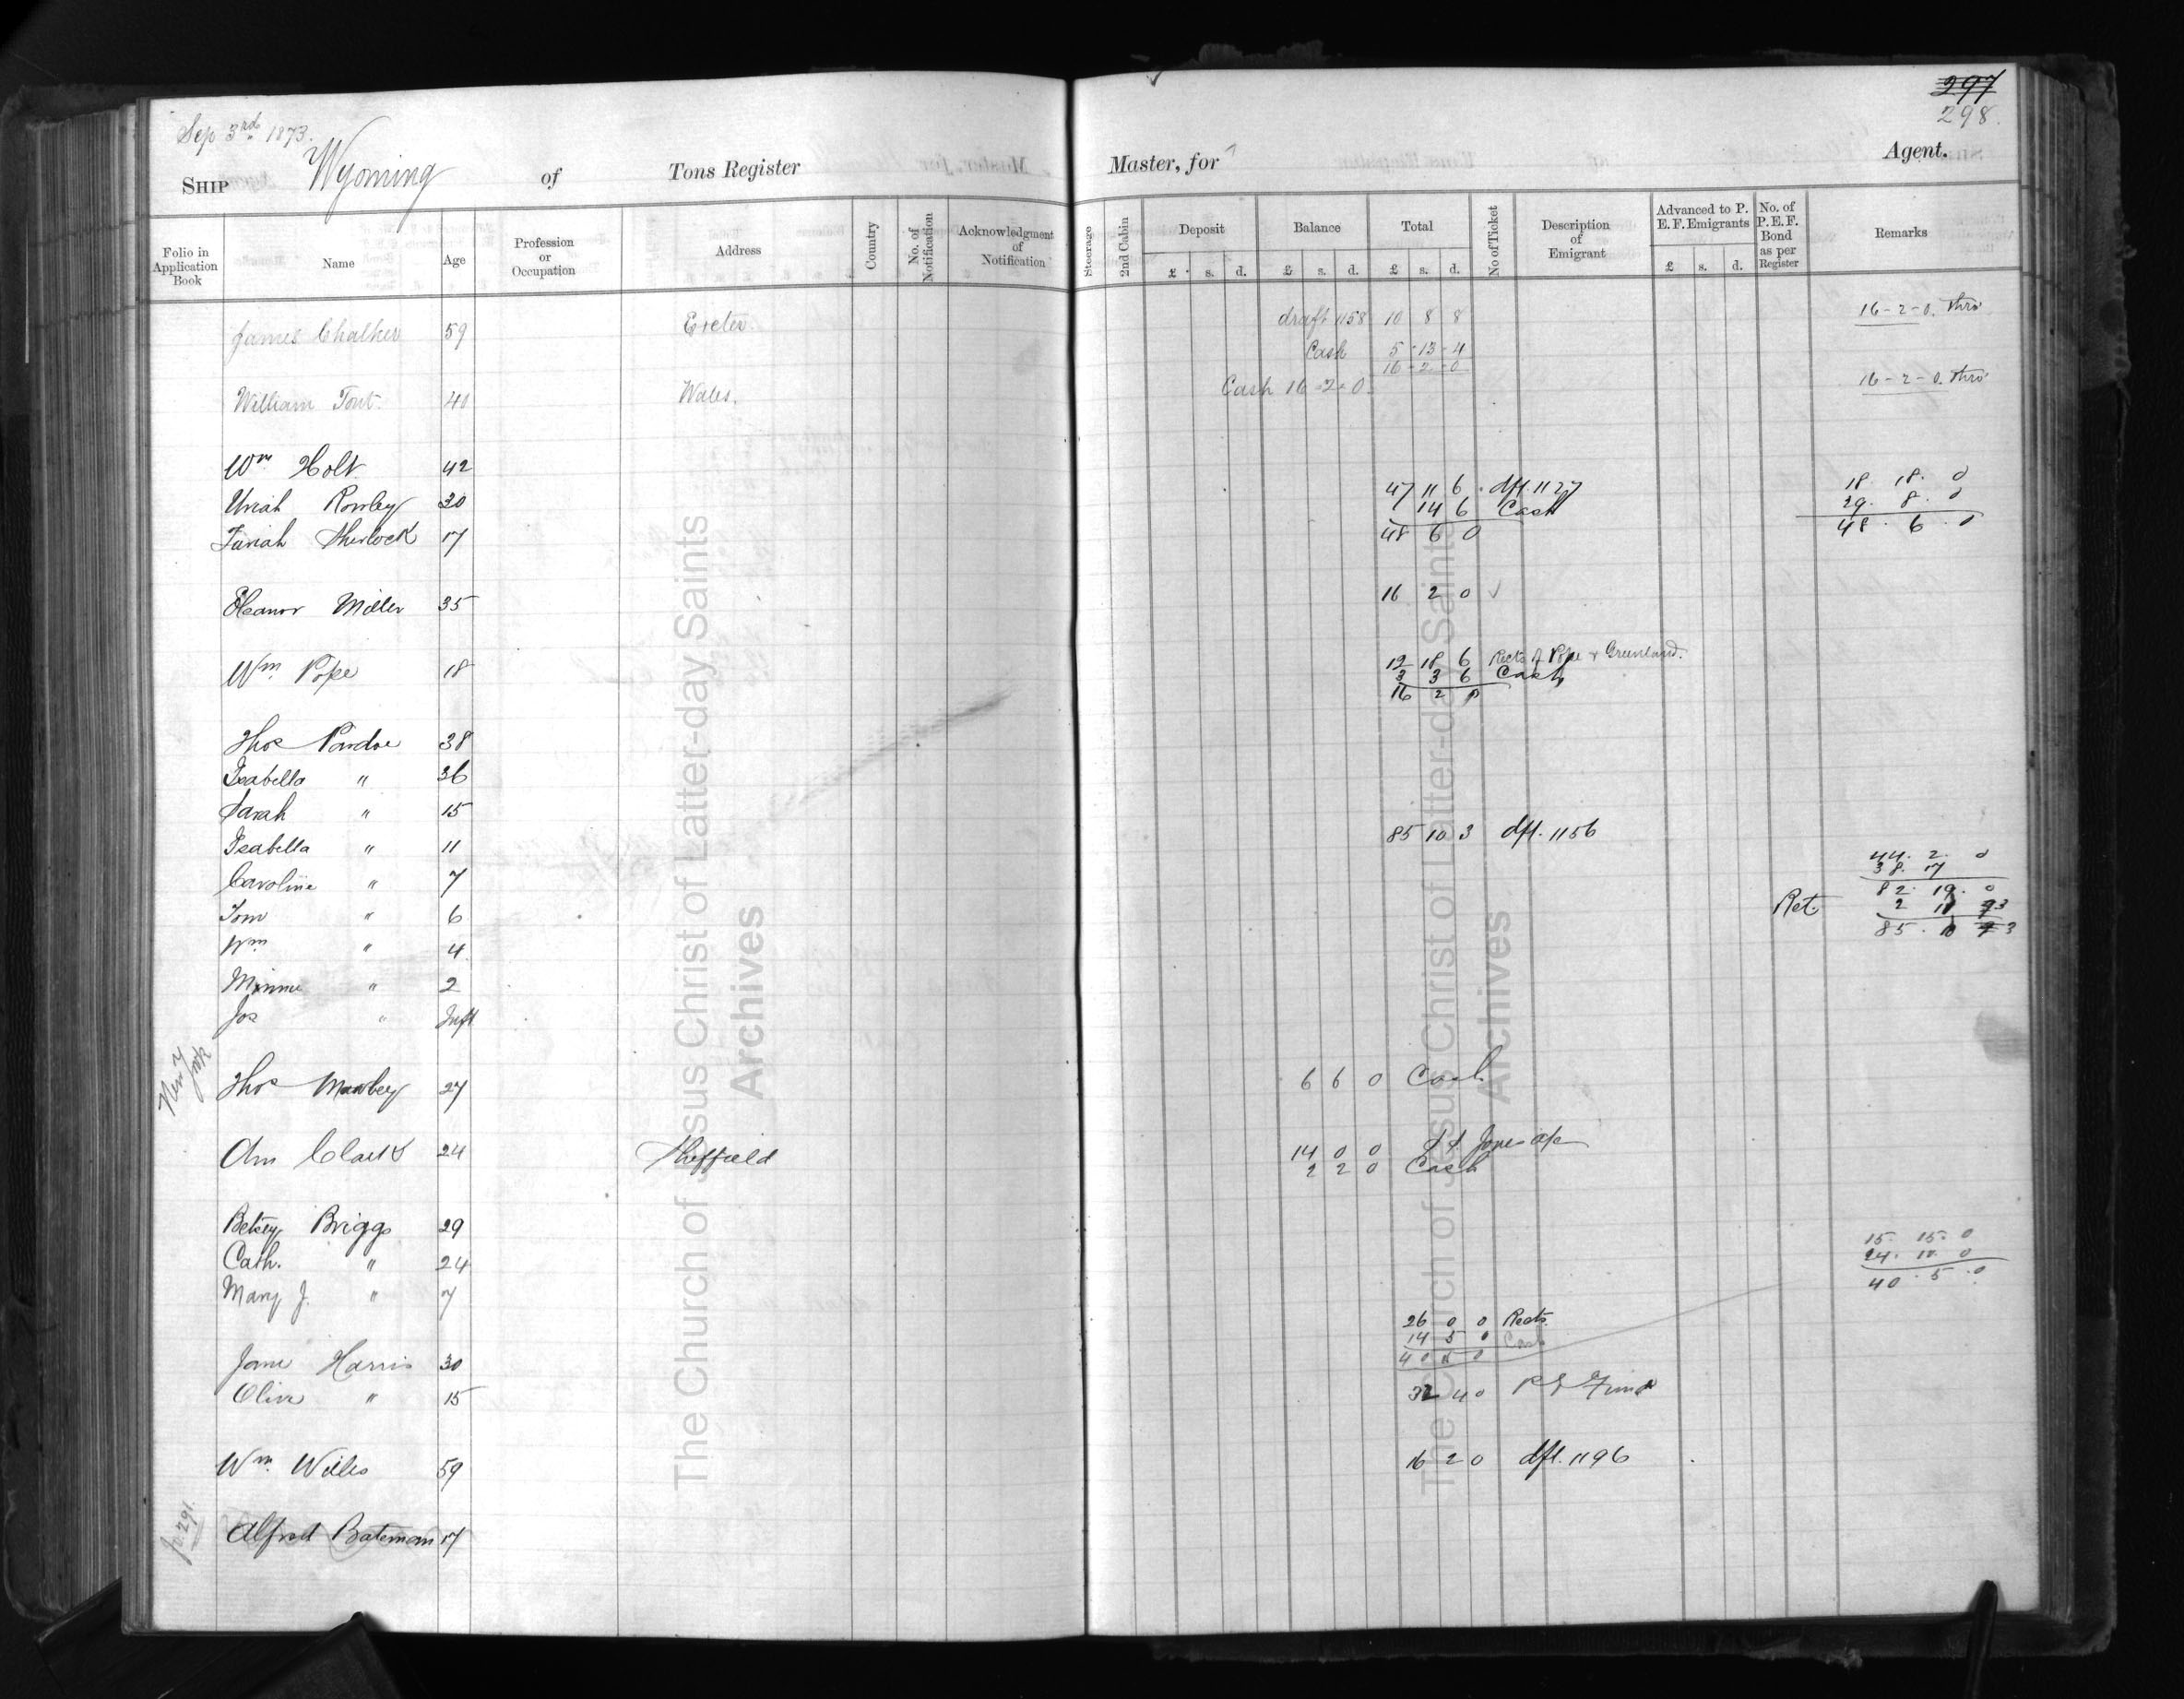 297
298.
Sep 3rd 1873.
SHIP Wyoming of Tons Register Master, for Agent.
Folio in Application Book Name Age Profession or Occupation Address Country No. of Notification Acknowledgment of Notification Steerage 2nd Cabin Deposit Balance Total No of Ticket Description of Emigrant Advanced to P. E. F. Emigrants No. of P. E. F. Bond as per Register Remarks
£ s. d. £ s. d. £ s. d. £ s. d.
James Chalker 59 Exeter draft 1158 10 8 8 16-2-0. thro'
Cash 5-13-4
16-2-0
William Tout. 40 Wales. Cash 16-2-0 16-2-0. thro'
Wm Holt 42
47 11 6 dft. 1127 18. 18. 0
Uriah Rowley 30 14 6 Cash 29. 8. 0
Sherlock 17 48 6 0 48. 6. 0
Eleanor Miller 35 16 2 0 ✓
Wm. Pope 18 12 18 6 Rects of Pope & Greenland.
3 3 6 Cash
16 2 0
Thos Pardoe 38
Isabella " 36
Sarah " 15
Isabella " 11 85 10 3 dft. 1156
44. 2. 0
38. 17
Caroline " 7 82. 19. 0
Tom " 6 Ret. 2 11 3
Wm " 4 85. 10 3
Minnie " 2
Jos " Inft
New York
Thos Mawbey 27 6 6 0 Cash
Ann Clark 24 Sheffield 14 0 0
2 2 0 Cash
Betsey Briggs 29 15. 15. 0
Cath. " 24 24. 10. 0
Mary J. " 7 40. 5. 0
26 0 0 Rects.
14 5 0 Cash
Jane Harris 30 40 5 0
Olive " 15 32 4 0 P E Fund
Wm. Willes 59 16 2 0 dft. 1196
fo 291.
Alfred Bateman 17
The Church of Jesus Christ of Latter-day Saints
Archives
The Church of Jesus Christ of Latter-day Saints
Archives